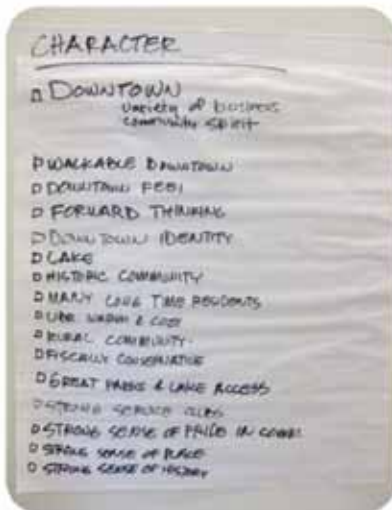 CHARACTER
DOWNTOWN
variety of business
community spirit
WALKABLE DOWNTOWN
DOWNTOWN FEEL
FORWARD THINKING
DOWNTOWN IDENTITY
LAKE
HISTORIC COMMUNITY
MANY LONG TIME RESIDENTS
WARM & COZY
RURAL COMMUNITY
FISCALLY CONSERVATIVE
GREAT PARKS & LAKE ACCESS
STRONG SERVICE CLUBS
STRONG SENSE OF PRIDE IN COMM.
STRONG SENSE OF PLACE
STRONG SENSE OF HISTORY